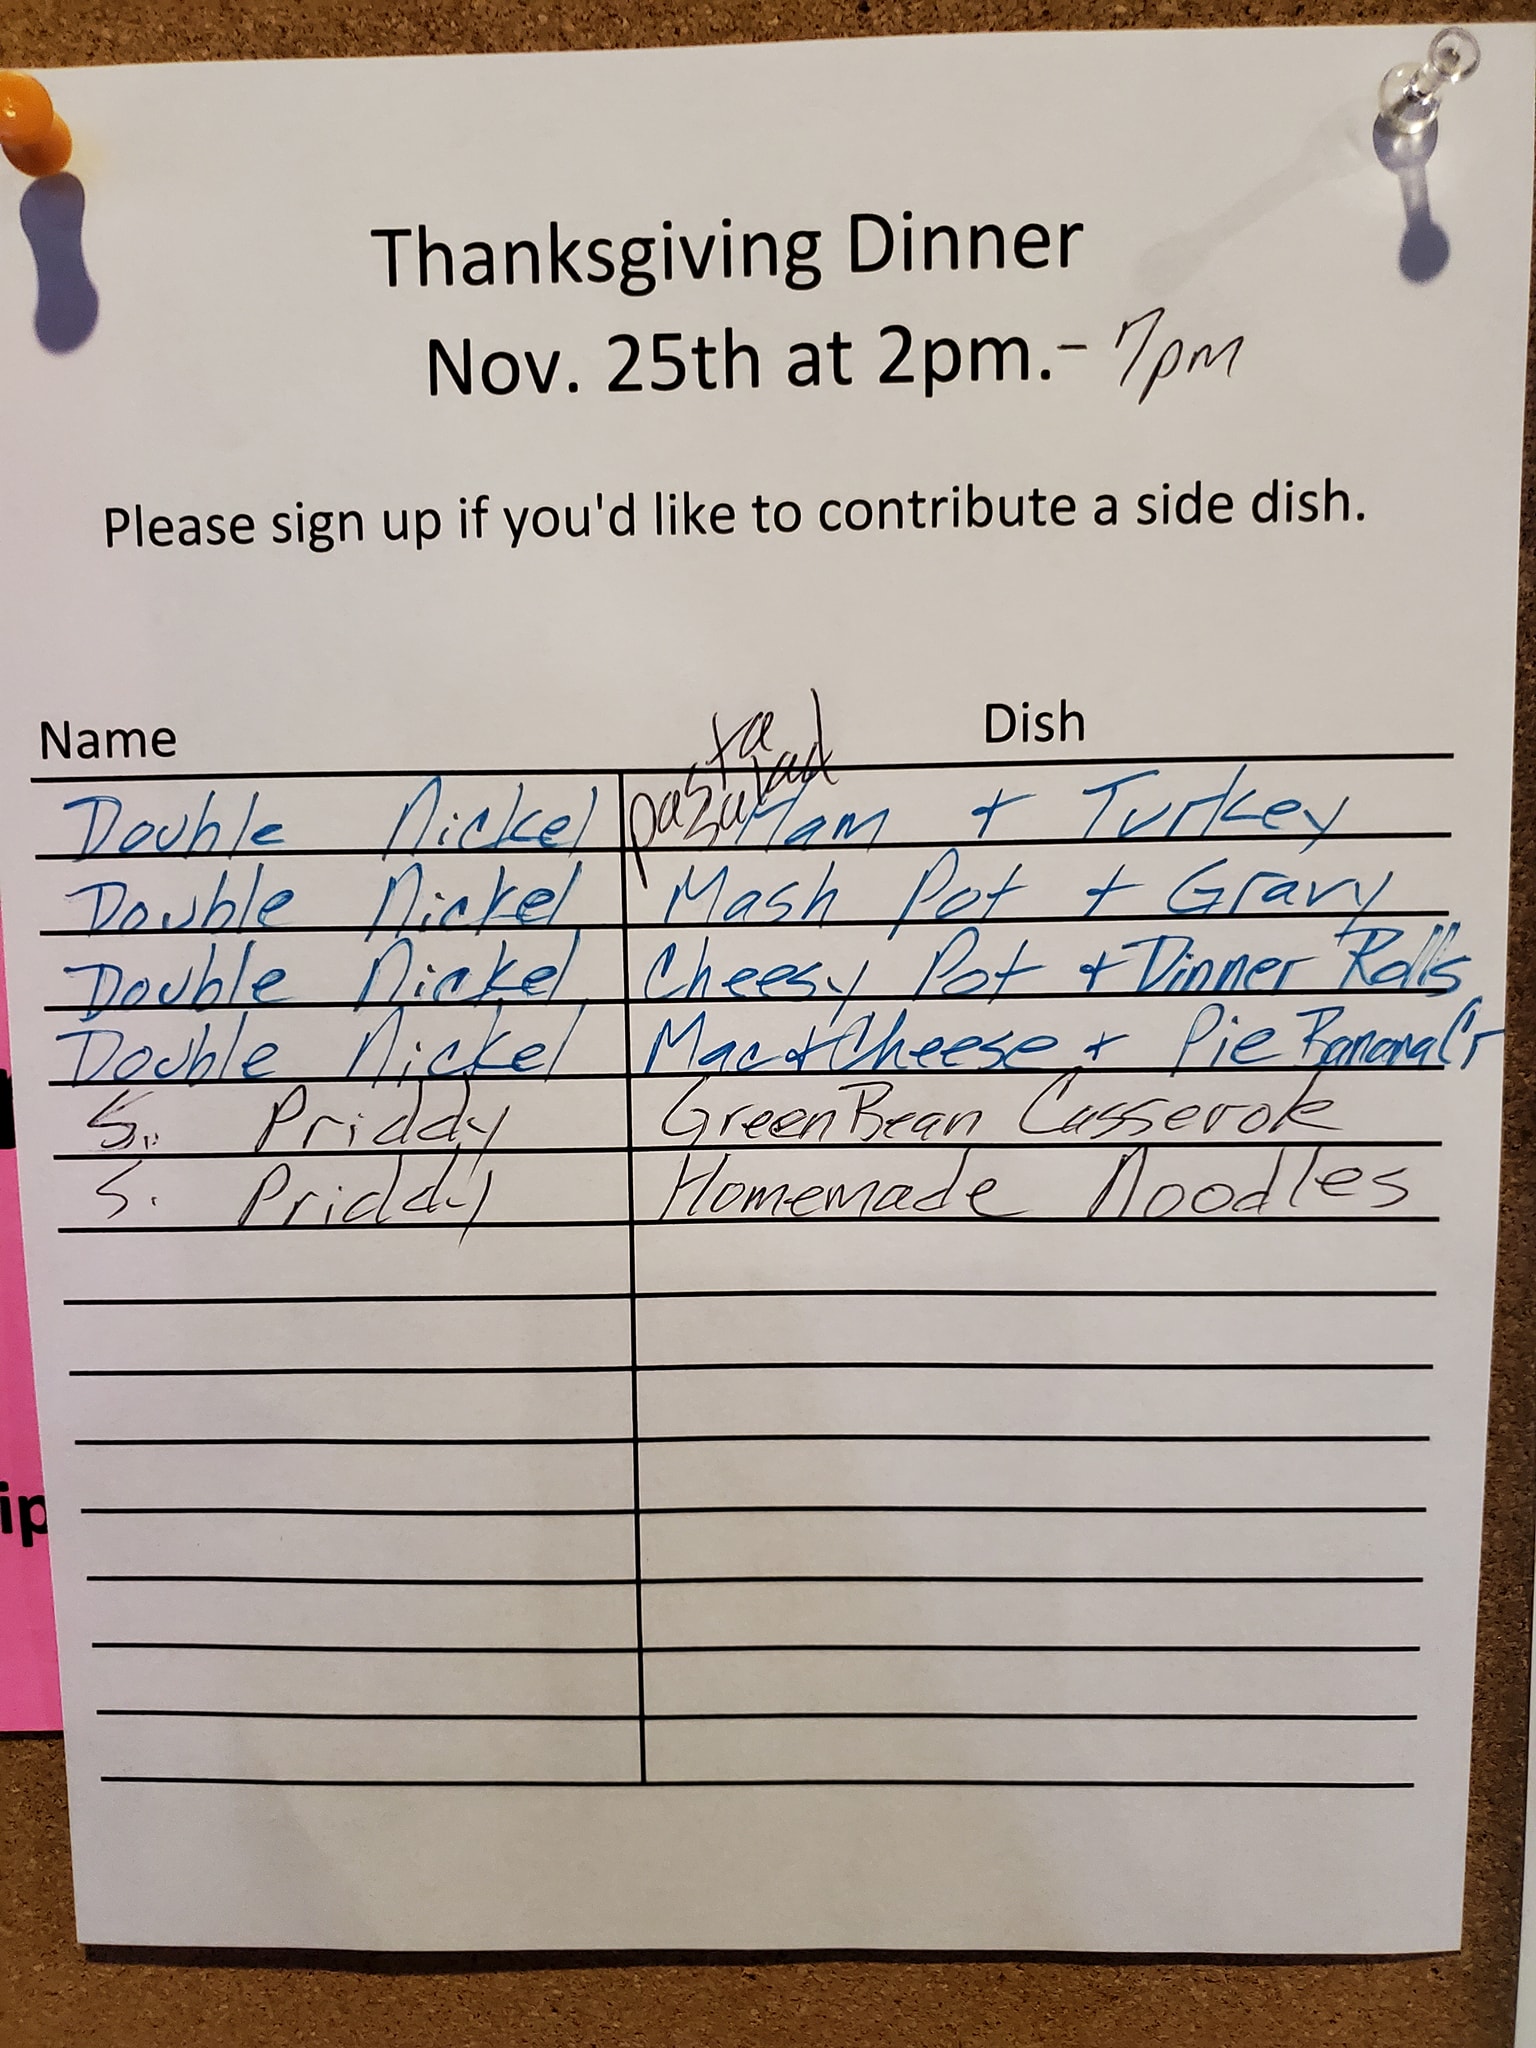 Thanksgiving Dinner
Nov. 25th at 2pm. - 7pm
Please sign up if you'd like to contribute a side dish.
Name Dish
pasta
salad
Double Nickel Ham + Turkey
Double Nickel Mash Pot + Gravy
Double Nickel Cheesy Pot + Dinner Rolls
Double Nickel Mac + Cheese + Pie Banana Cr
S. Priddy Green Bean Casserole
S. Priddy Homemade Noodles
ip